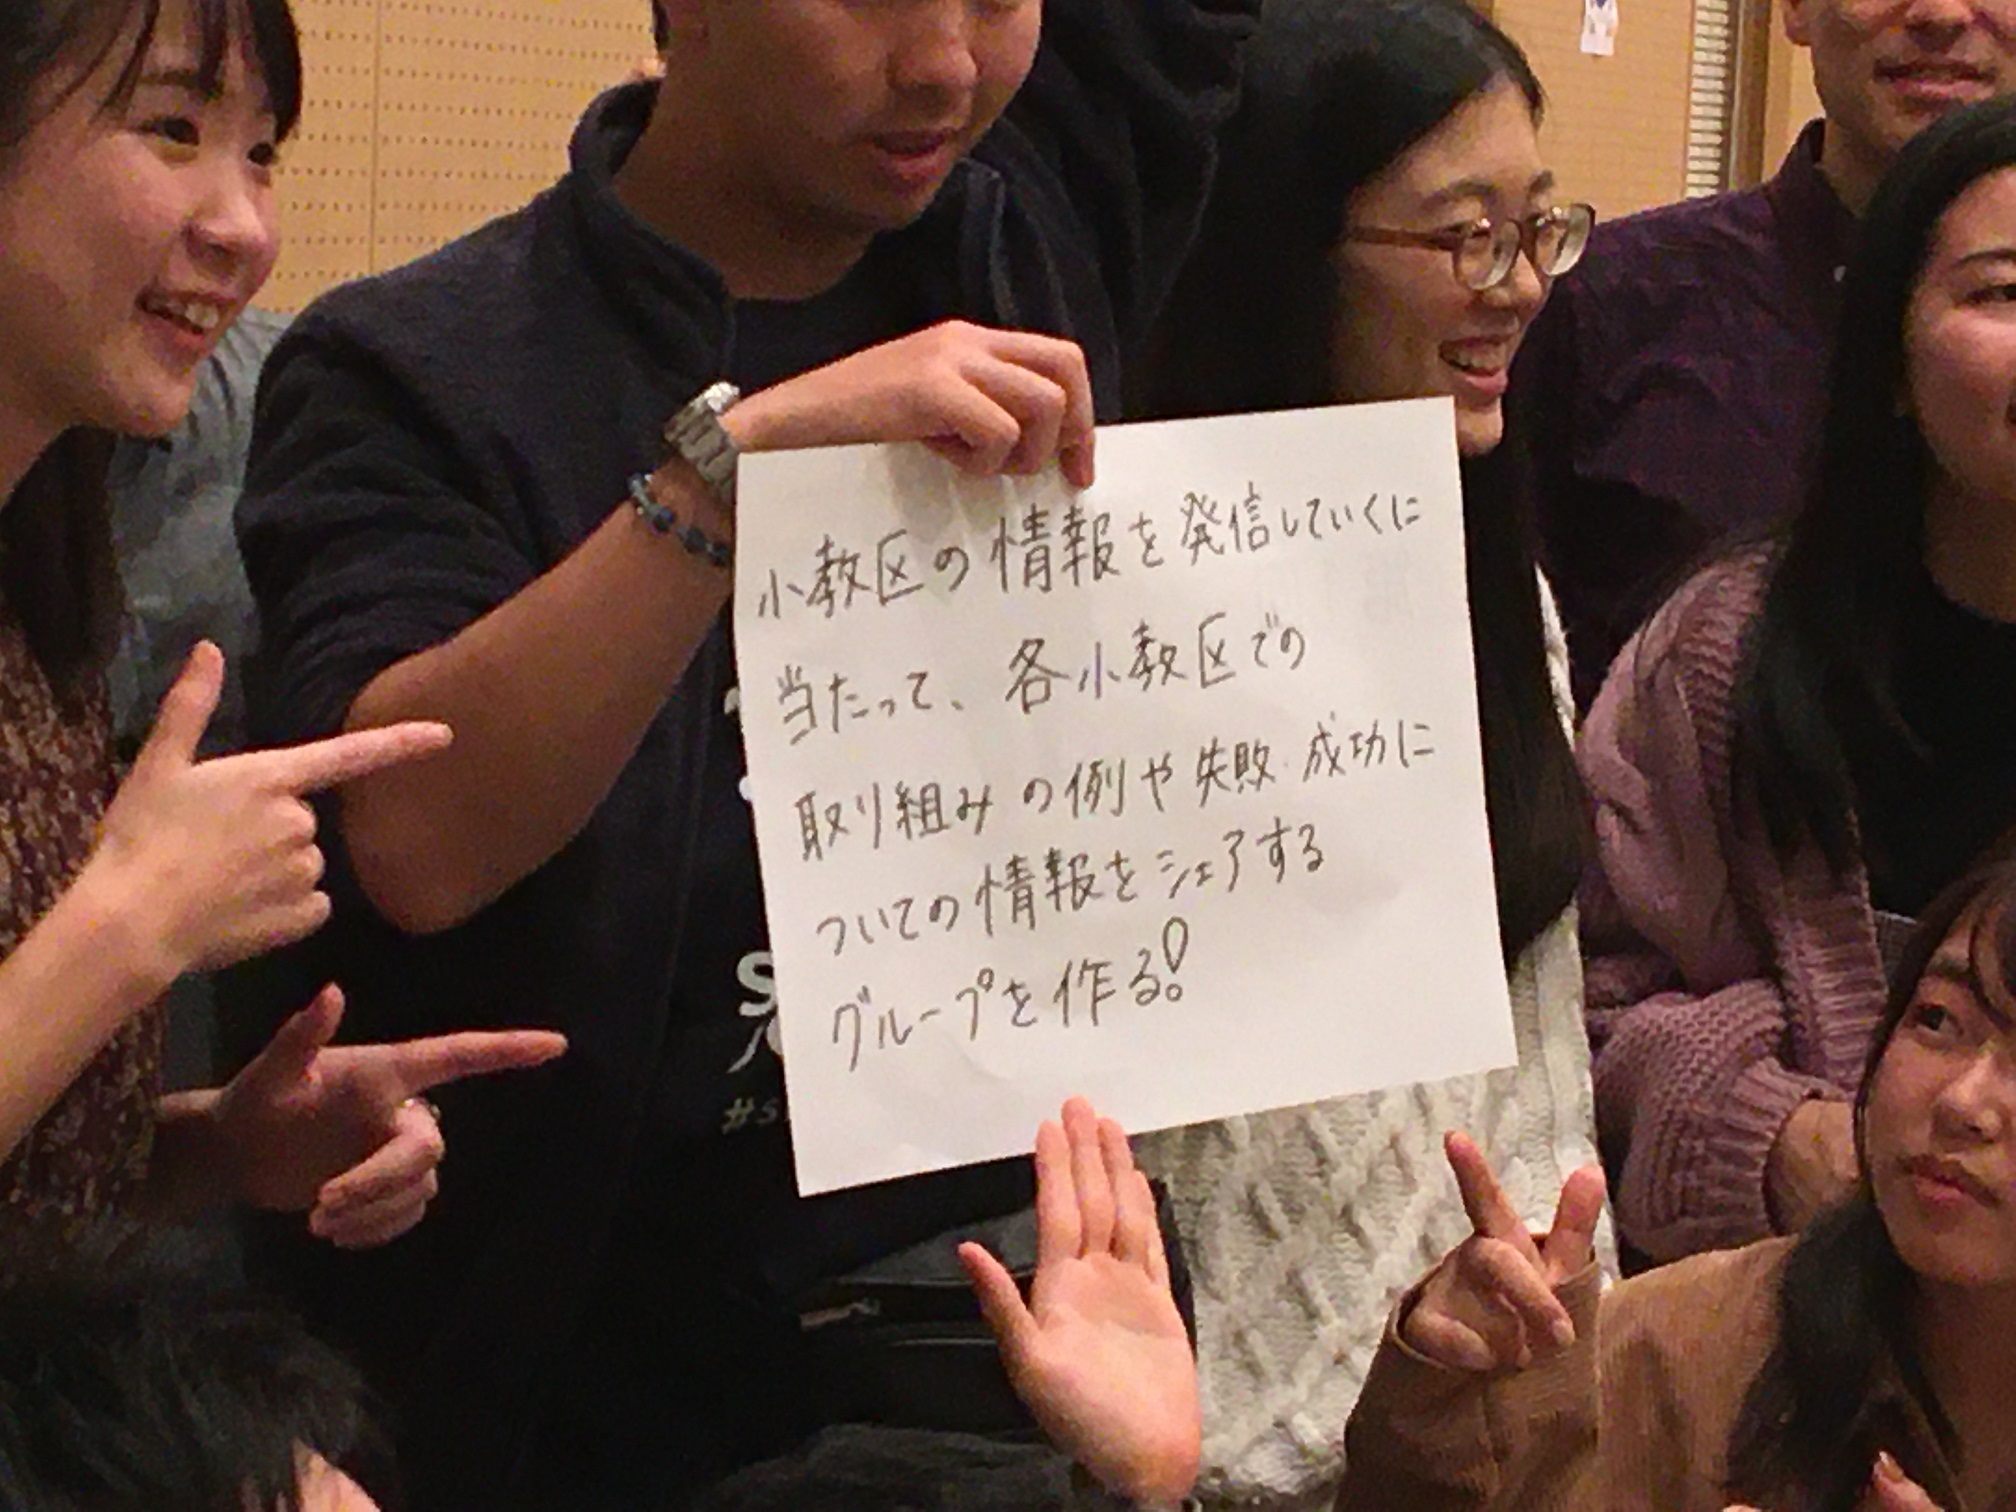 小教区の情報を発信していくに
当たって、各小教区での
取り組みの例や失敗・成功に
ついての情報をシェアする
グループを作る!